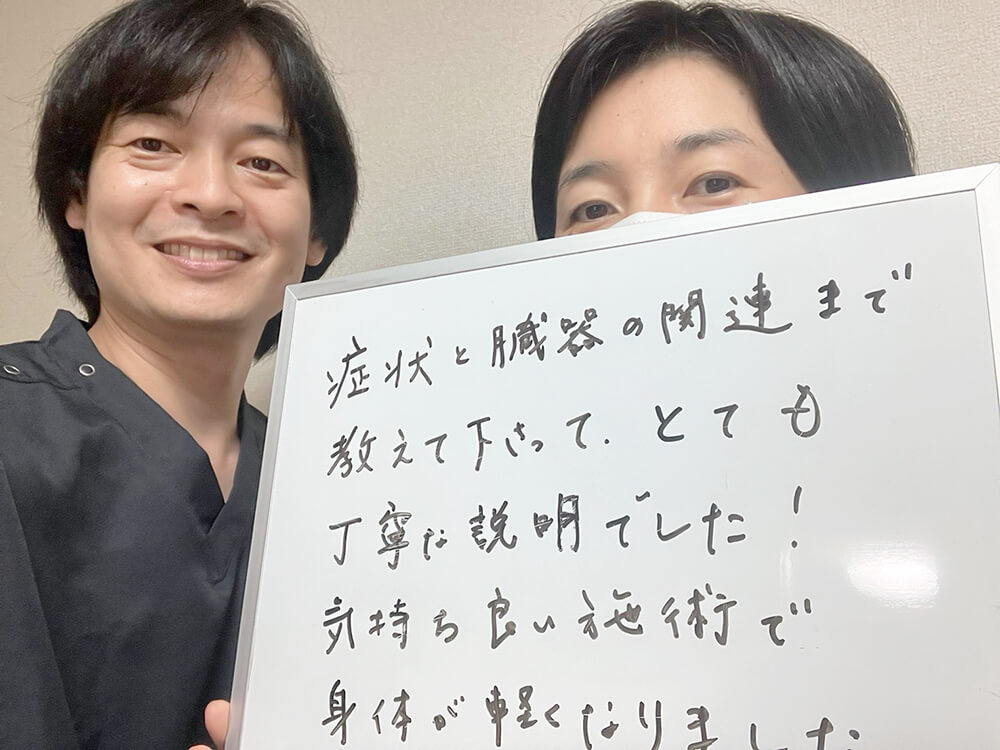 症状と臓器の関連まで
教えて下さって、とても
丁寧な説明でした！
気持ち良い施術で
身体が軽くなりました